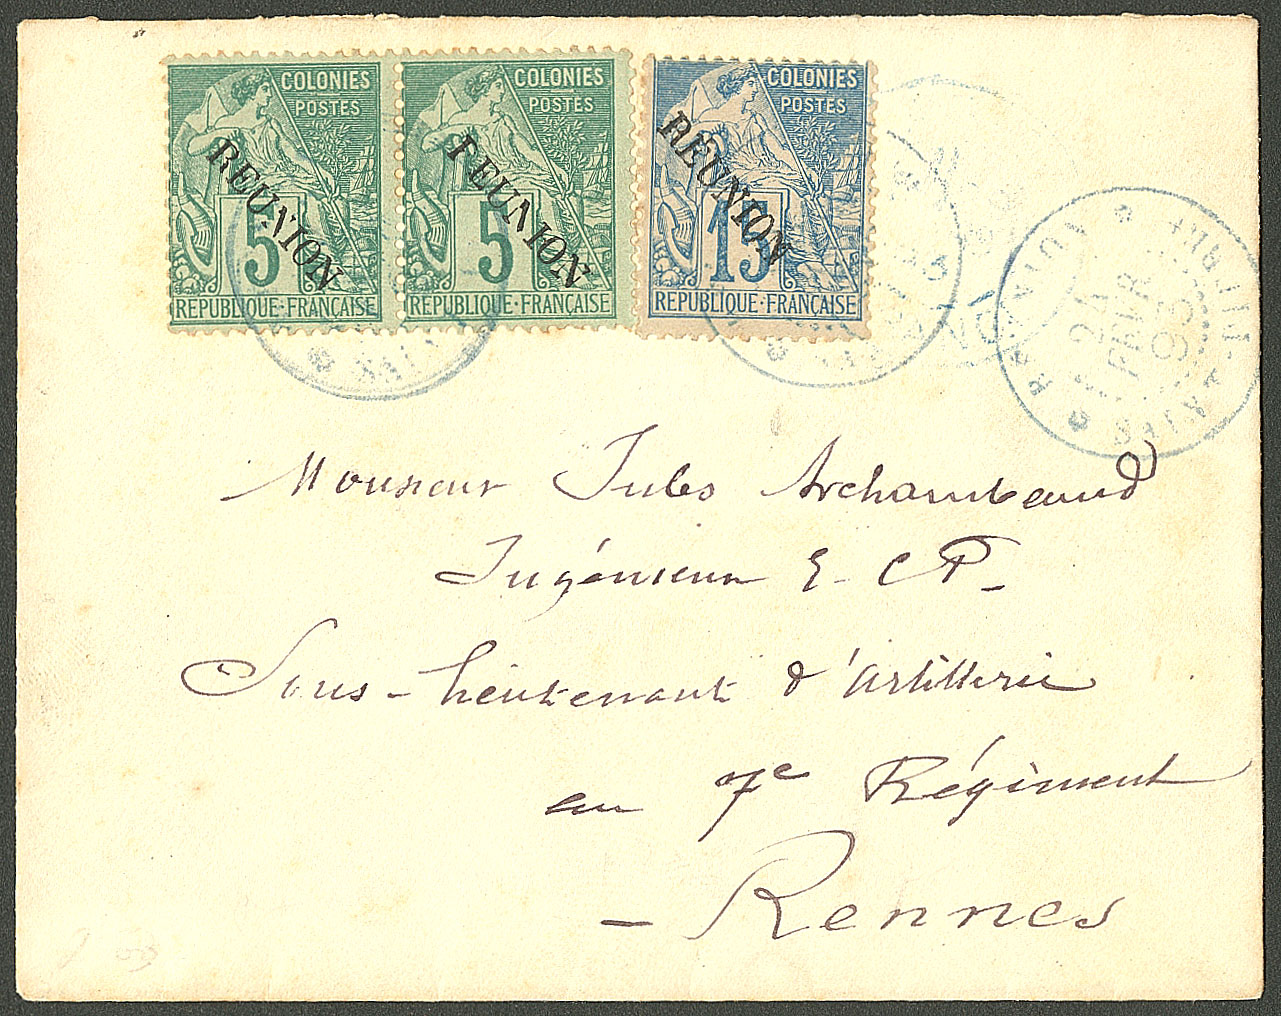 COLONIES
POSTES
REUNION
5
REPUBLIQUE·FRANÇAISE
COLONIES
POSTES
REUNION
5
REPUBLIQUE·FRANÇAISE
COLONIES
POSTES
REUNION
15
REPUBLIQUE·FRANÇAISE
REUNION
24
FEVR
93
Monsieur Jules Archambeaud
Ingénieur E. C P_
Sous-lieutenant d'artillerie
au 7e Régiment
- Rennes